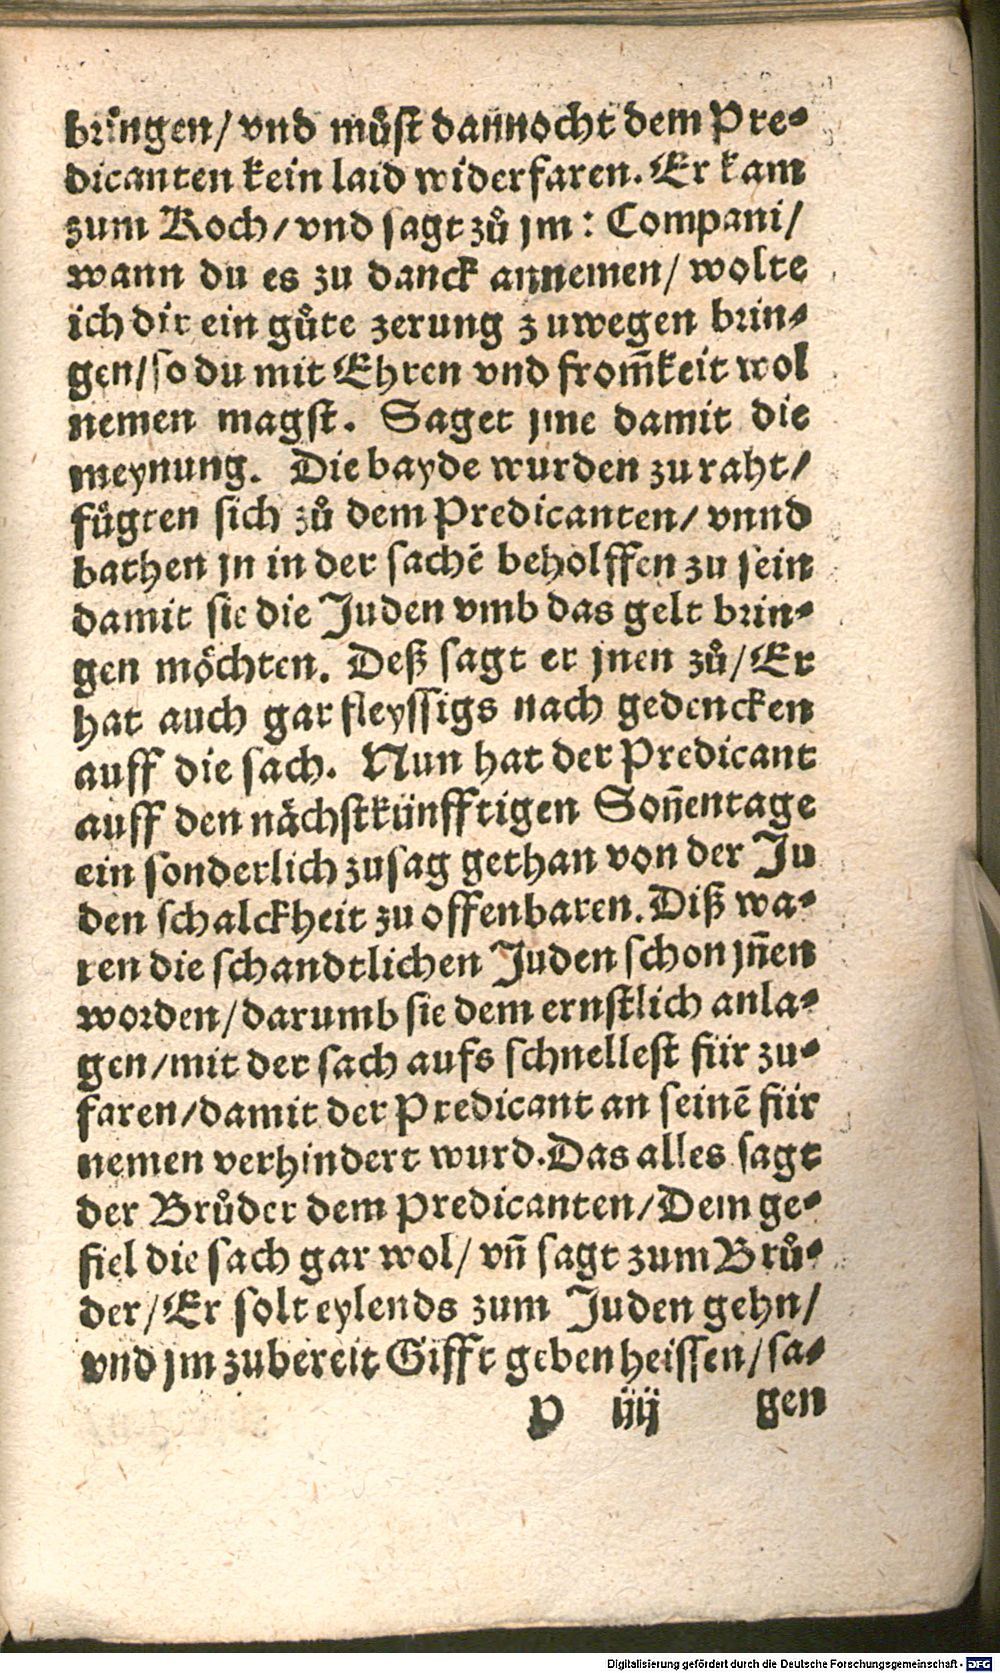 bringen/ vnd můst dannocht dem Pre-
dicanten kein laid widerfaren. Er kam
zum Koch/ vnd sagt zů jm: Compani/
wann du es zu danck annemen/ wolte
ich dir ein gůte zerung zuwegen brin-
gen/ so du mit Ehren vnd from̃keit wol
nemen magst. Saget jme damit die
meynung. Die bayde wurden zu raht/
fůgten sich zů dem Predicanten/ vnnd
bathen jn in der sachẽ beholffen zu sein
damit sie die Juden vmb das gelt brin-
gen möchten. Deß sagt er jnen zů/ Er
hat auch gar fleyssigs nach gedencken
auff die sach. Nun hat der Predicant
auff den nächstkünfftigen Son̄entage
ein sonderlich zusag gethan von der Ju
den schalckheit zu offenbaren. Diß wa-
ren die schandtlichen Juden schon jn̄en
worden/ darumb sie dem ernstlich anla-
gen/ mit der sach aufs schnellest für zu-
faren/ damit der Predicant an seinẽ für
nemen verhindert wurd. Das alles sagt
der Brůder dem Predicanten/ Dem ge-
fiel die sach gar wol/ vn̄ sagt zum Brů-
der/ Er solt eylends zum Juden gehn/
vnd jm zubereit Gifft geben heissen/ sa-
P iiij gen
Digitalisierung gefördert durch die Deutsche Forschungsgemeinschaft - DFG